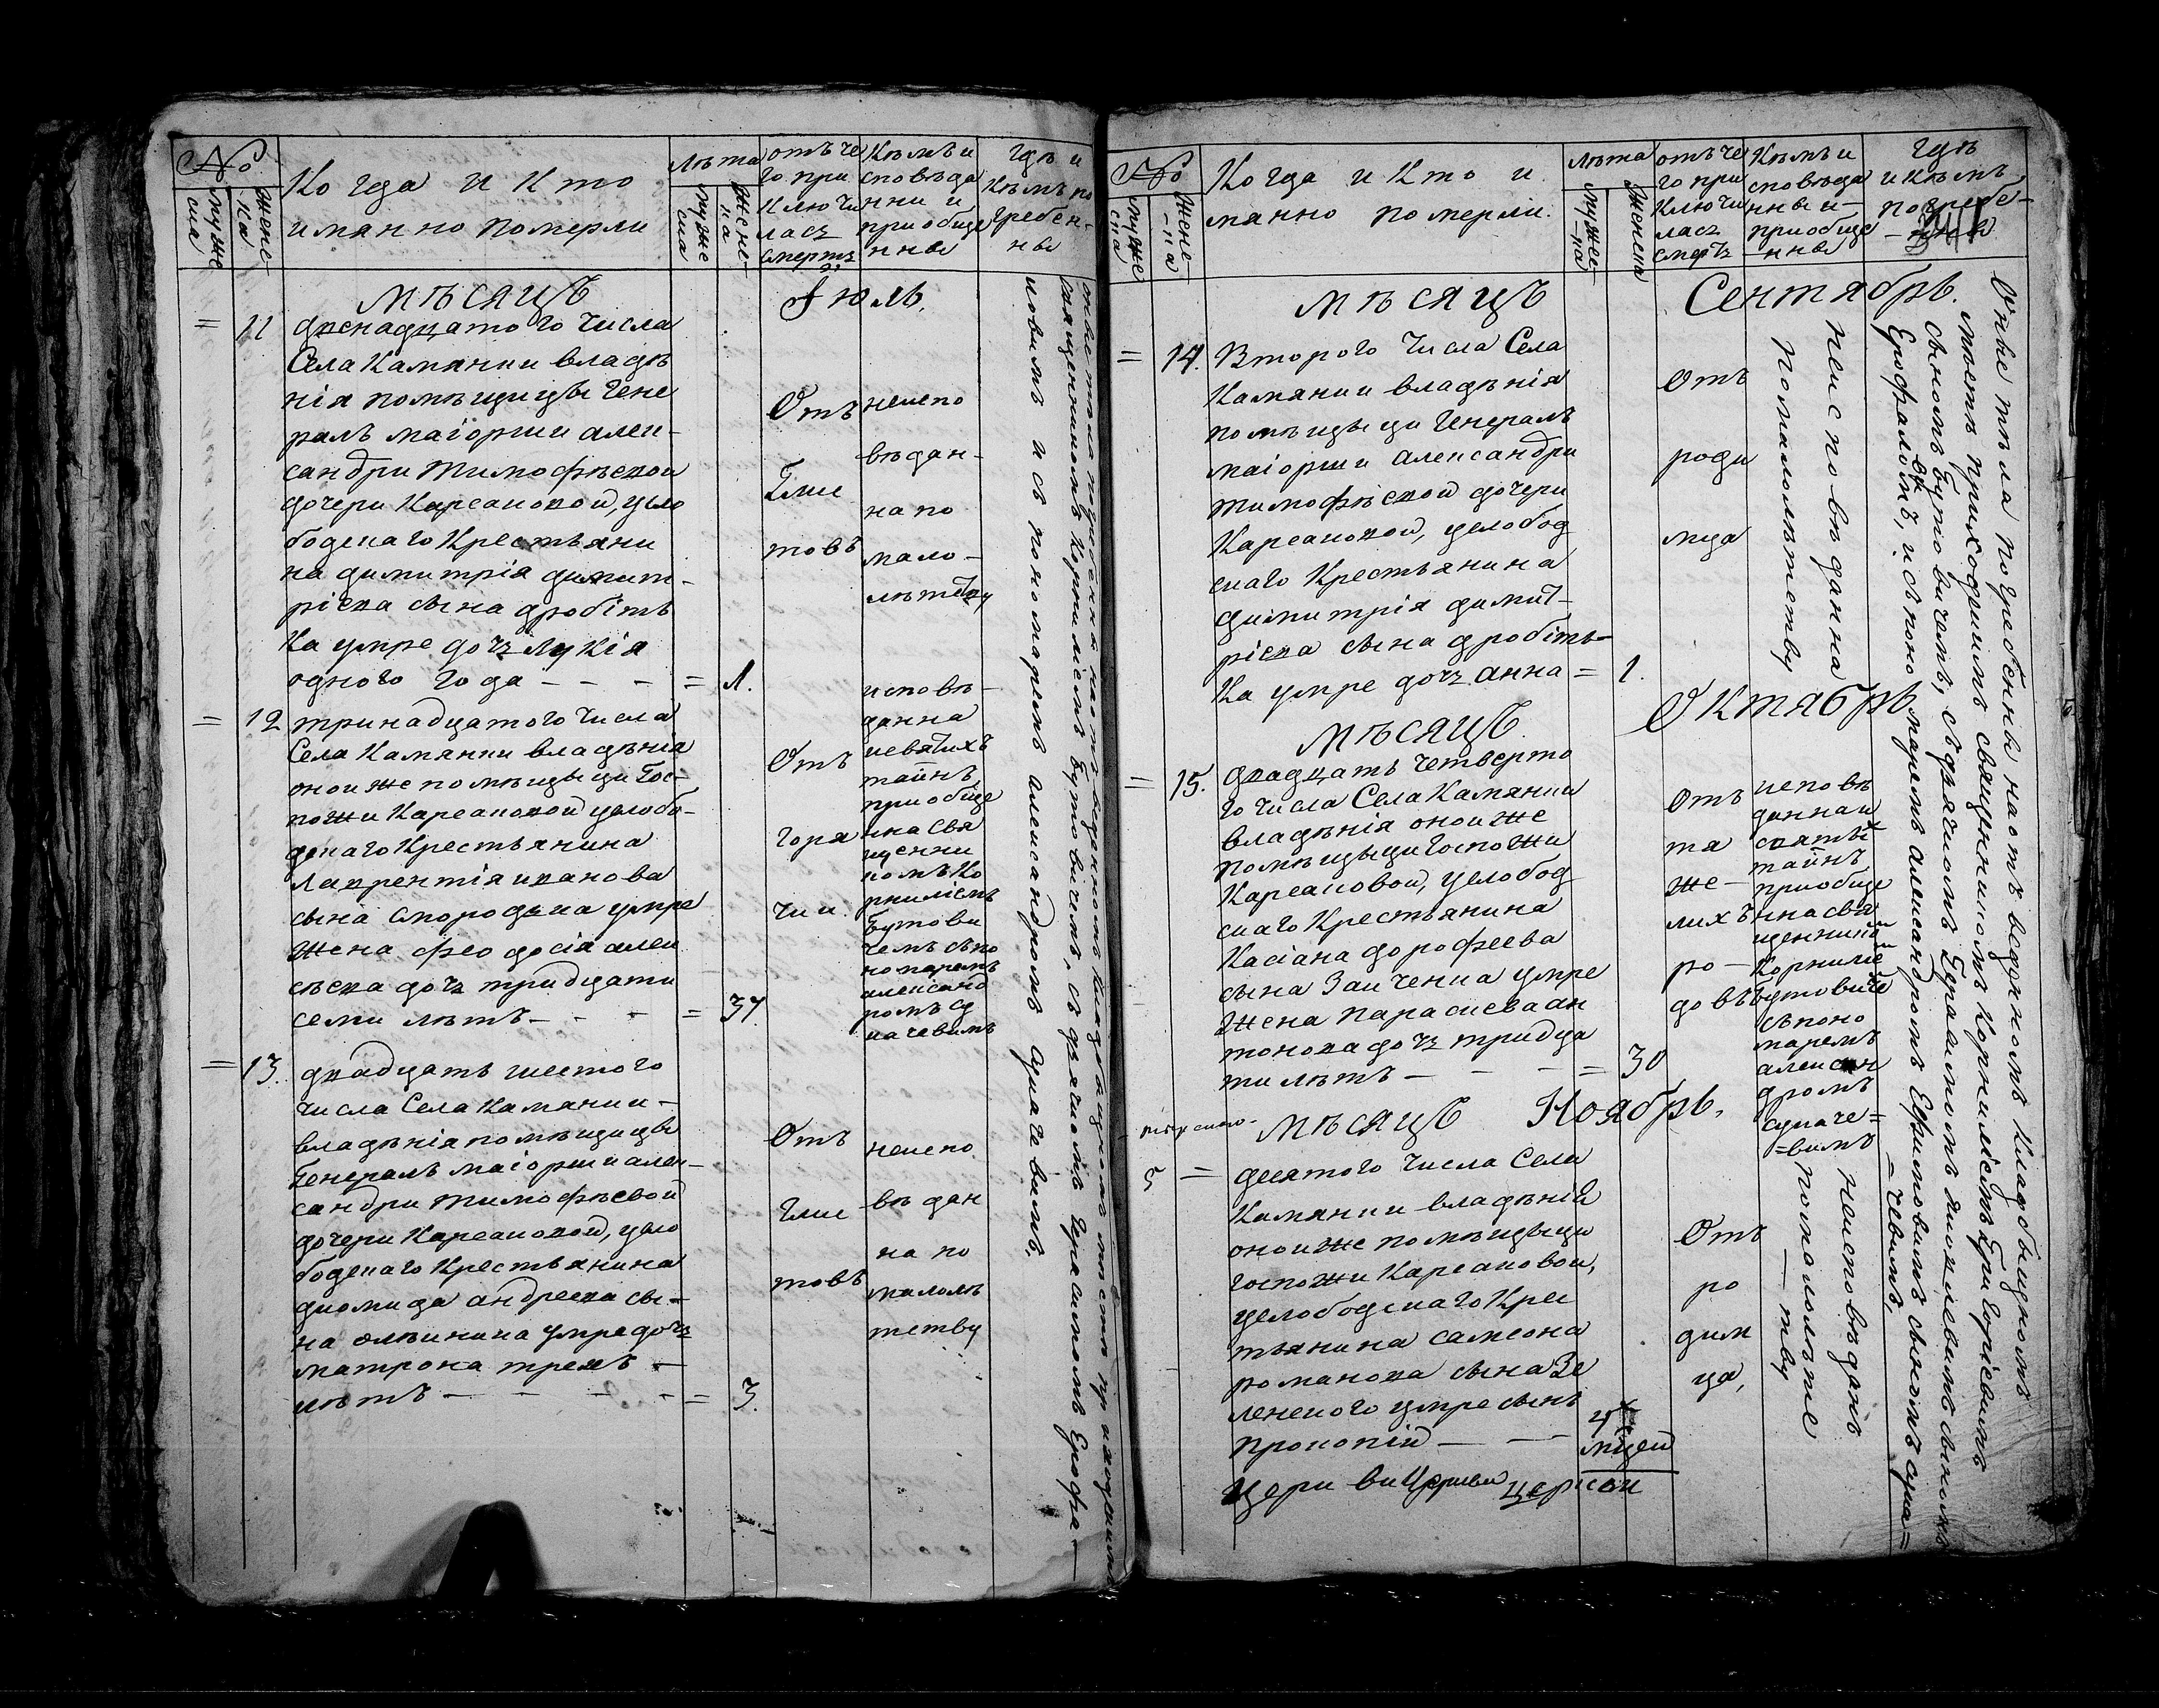 №
муже
ска
жене-
ка
Когда и кто
имянно померли
Лѣта
муже
ска
жене-
ка
отъ че
го при
ключи
лась
смерть
Кѣмъ и
сповѣда
нни и
приобще
нны
Гдѣ и
кѣмъ по
гребен-
ны
Мѣсяцъ Іюль.
= 11 двенадцатого числа
Села Камянки владѣ
нія помѣщицы гене
ралъ маіорши алек-
сандри Тимофѣевой
дочери Карсаковой, уело
бодскаго крестьяни
на димитрія димит-
ріева сына дробітъ
ка умре дочь Лукія
одного года - - - = 1.
Отъ
Глис
товъ
неиспо
вѣдан-
на по
мало-
лѣтству
= 12 тринадцатого числа
Села Камянки владѣнія
оной же помѣщыци Гос-
пожи Карсаковой уелобо-
дскаго крестьянина
лаврентія иванова
сына смородъка умре
жена феодосія алек
сѣева дочь тридцати
семи лѣтъ - - - = 37.
Отъ
горя
чки.
исповѣ-
данна
исвятихъ
тайнъ
приобще
нна свя
щенни
комъ Ко
рниліемъ
Бутови
чемъ съ по
номаремъ
александ
ромъ су
качевимъ
= 13. двадцать шестого
числа Села Камянки -
владѣнія помѣщицы
Генералъ маіорши алек-
сандри Тимофѣевой
дочери Карсаковой, уело
бодскаго крестьянина
диомида андреева сы-
на олѣйника умре дочь
матрона трехъ -
лѣтъ - - - - = 3.
Отъ
глис
товъ
неиспо
вѣдан
на по
малолѣ
тству
священникомъ Корниліемъ Бутовичемъ, съ дячкомъ Герасимомъ Ерофа-
ловимъ и съ пономаремъ александромъ сукачевимъ.
№
муже
ска
жене-
-ка
Когда и кто и
мянно померли.
Лѣта
муже
-ка
женска
отъ че
го при
ключи
лась
смерть
Кѣмъ и
сповѣда
нны и-
приобще
-нны
Гдѣ
и кѣмъ
погребе-
-нны
Мѣсяцъ Сентябрь.
= 14. Второго числа Села
Камянки владѣнія
помѣщыци Генералъ
маіорши александри
тимофѣевой дочери
Карсаковой, уелобод
скаго крестьянина
димитрія димит-
ріева сына дробітъ-
ка умре дочь анна = 1.
Отъ
роди
мца
неисповѣданна
по малолѣтству
Мѣсяцъ Октябрь
= 15. двадцать четверто
го числа Села Камянки
владѣнія оной же
помѣщыци госпожи
Карсаковой, уелобод
скаго крестьянина
Касіана дорофеева
сына Заиченка умре
жена параскева ан
тонова дочь тридца
ти лѣтъ - - - = 30
Отъ
тя
же-
лихъ
ро-
довъ
исповѣ
данна и
святѣ
тайнъ
приобще
нна свя
щенником
Корниліе
Бутовиче
съ поно
маремъ
алексан
дромъ
сукаче=
=вимъ
Мѣсяцъ Ноябрь.
5 = десятого числа Села
Камянки владѣній
оной же помѣщыци
госпожи Карсаковой,
уелободскаго крес
тьянина самсона
романова сына Зе
ленского умре сынъ
прокопій - - -
мцей
Отъ
ро
дим
ца,
неисповѣданъ
по малолѣтс
-тву
Оные тѣла погребены на отъведенномъ кладбищномъ
мѣстѣ приходскимъ священникомъ Корниліемъ Григоріевимъ
сыномъ Бутовичемъ, съ дячкомъ Герасимомъ яковлевимъ сыномъ
Ерофаловимъ, и съ пономаремъ александромъ Ефимовимъ сыномъ сука=
=чевимъ.